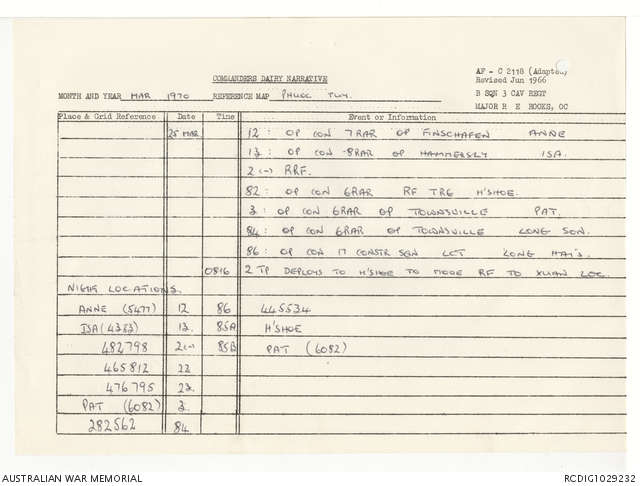 COMMANDERS DAIRY NARRATIVE
AF - C 2118 (Adapted)
Revised Jun 1966
MONTH AND YEAR MAR 1970 REFERENCE MAP PHUOC TUY. B SQN 3 CAV REGT
MAJOR R E ROOKS, OC
Place & Grid Reference Date Time Event or Information
25 MAR 12 : OP CON 7RAR OP FINSCHAFEN ANNE
13 : OP CON 8RAR OP HAMMERSLY ISA.
2 (-) RRF.
82 : OP CON 6RAR RF TRG H'SHOE.
3 : OP CON 6RAR OP TOWNSVILLE PAT.
84 : OP CON 6RAR OP TOWNSVILLE LONG SON.
86 : OP CON 17 CONSTR SQN LCT LONG HAI'S.
0816 2 TP DEPLOYS TO H'SHOE TO MOVE RF TO XUAN LOC.
NIGHT LOCATIONS.
ANNE (5477) 12 86 445534
ISA (4383) 13. 85A H'SHOE
482798 2(-) 85B PAT (6082)
465812 22
476795 23.
PAT (6082) 3.
282562 84.
AUSTRALIAN WAR MEMORIAL RCDIG1029232